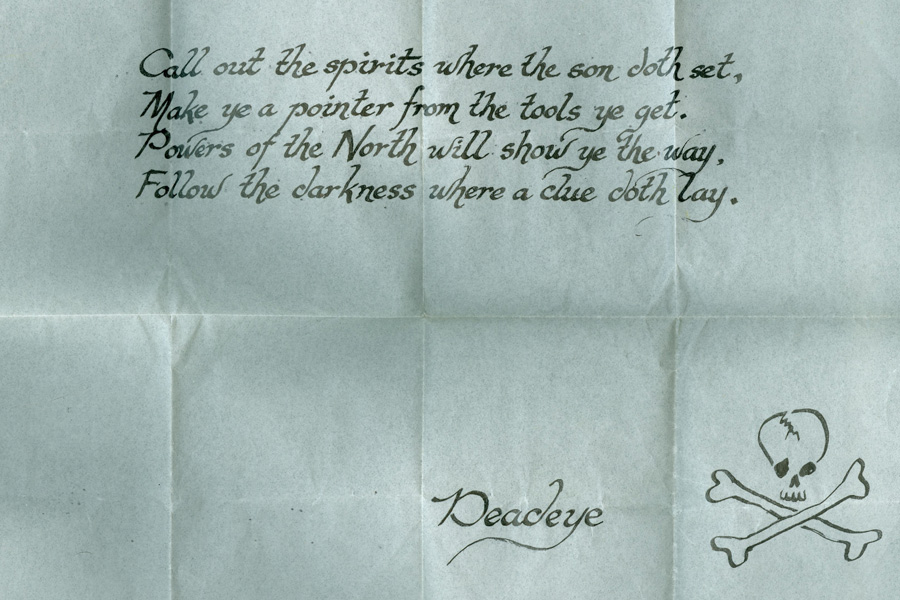 Call out the spirits where the son doth set,
Make ye a pointer from the tools ye get.
Powers of the North will show ye the way,
Follow the darkness where a clue doth lay.
Deadeye